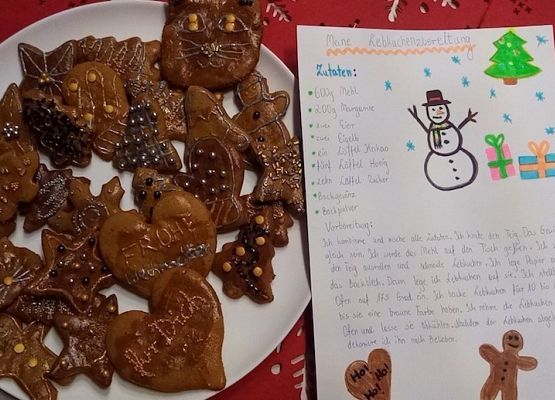 FROHE
Meine Lebkuchenzubereitung
Zutaten:
600g Mehl
200g Margarine
zwei Eier
zwei Eigelb
ein Löffel Kakao
fünf Löffel Honig
zehn Löffel Zucker
Backgewürz
Backpulver
Vorbereitung:
Ich kombiniere und mische alle Zutaten. Ich knete den Teig. Du
gleich sein. Ich werde das Mehl auf den Tisch geben. Ich
den Teig ausrollen und Ich lege Papier
das Backblech. Dann lege ich Lebkuchen auf sie. Ich stelle
Ofen auf 175 Grad ein. Ich backe Lebkuchen für 10 bis
bis sie eine braune Farbe haben. Ich nehme die Lebkuchen
Ofen und lasse sie abkühlen. Nachdem der Lebkuchen abgek
dekoriere ich ihn nach Belieben.
Ho!
Ho!
Ho!